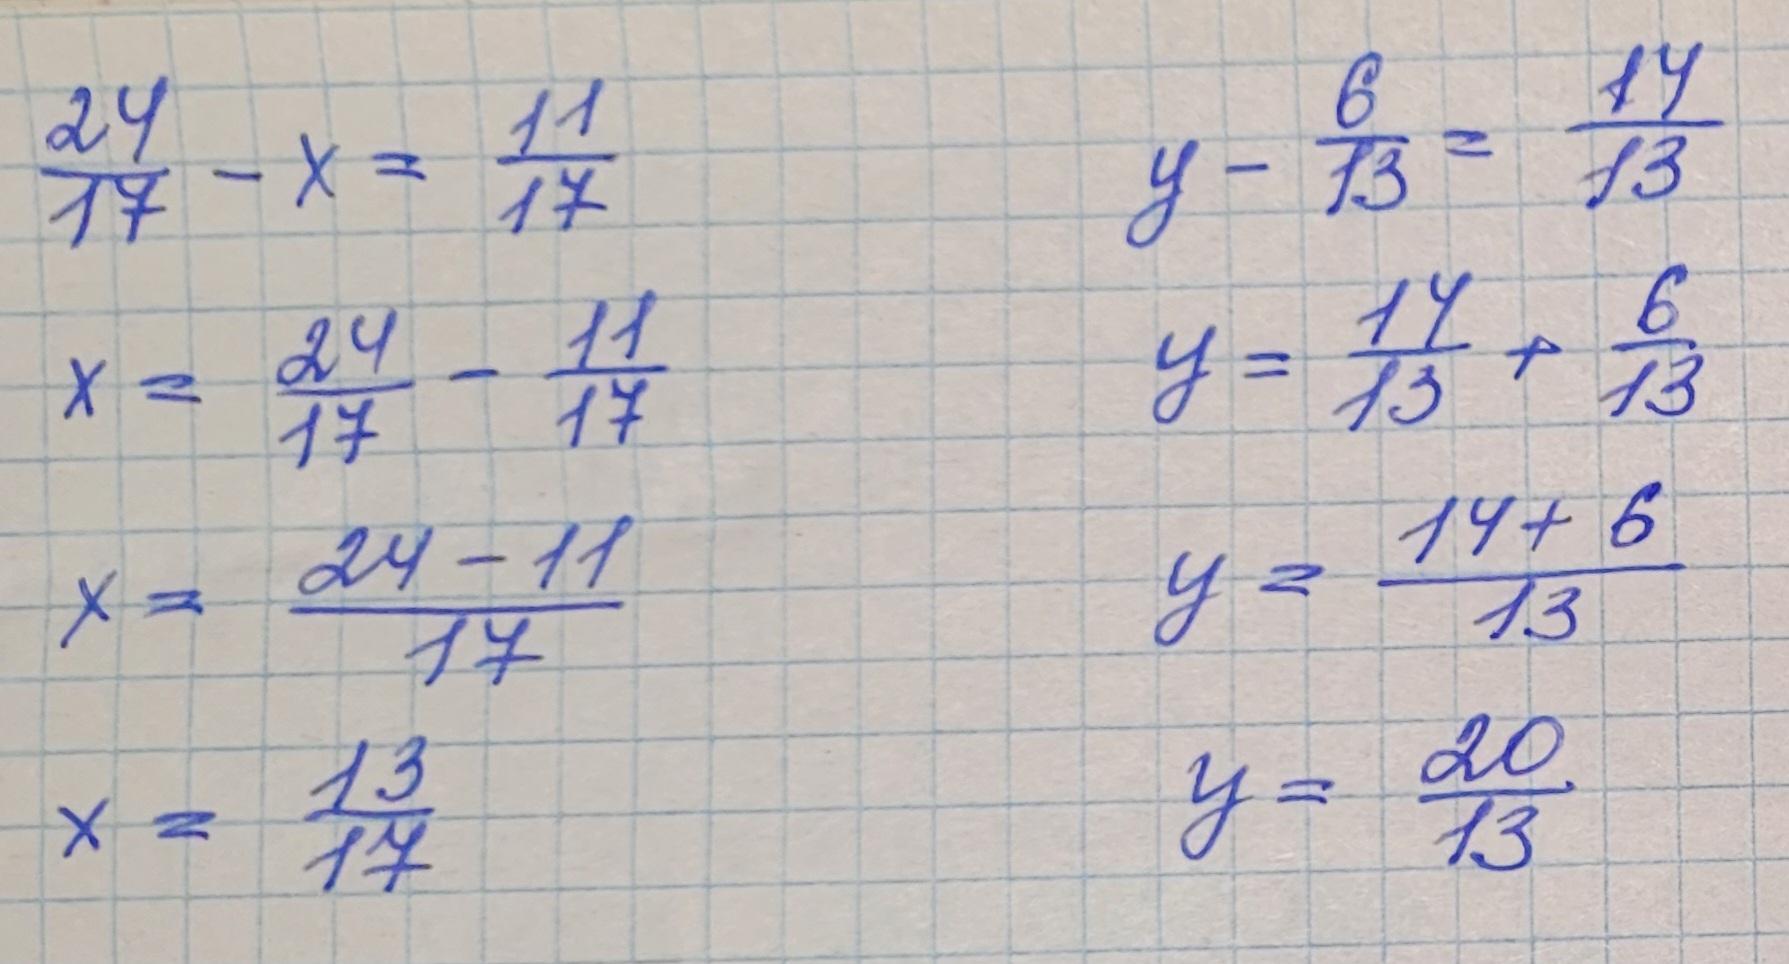 24/17 - x = 11/17
x = 24/17 - 11/17
x = (24 - 11)/17
x = 13/17
y - 6/13 = 14/13
y = 14/13 + 6/13
y = (14 + 6)/13
y = 20/13